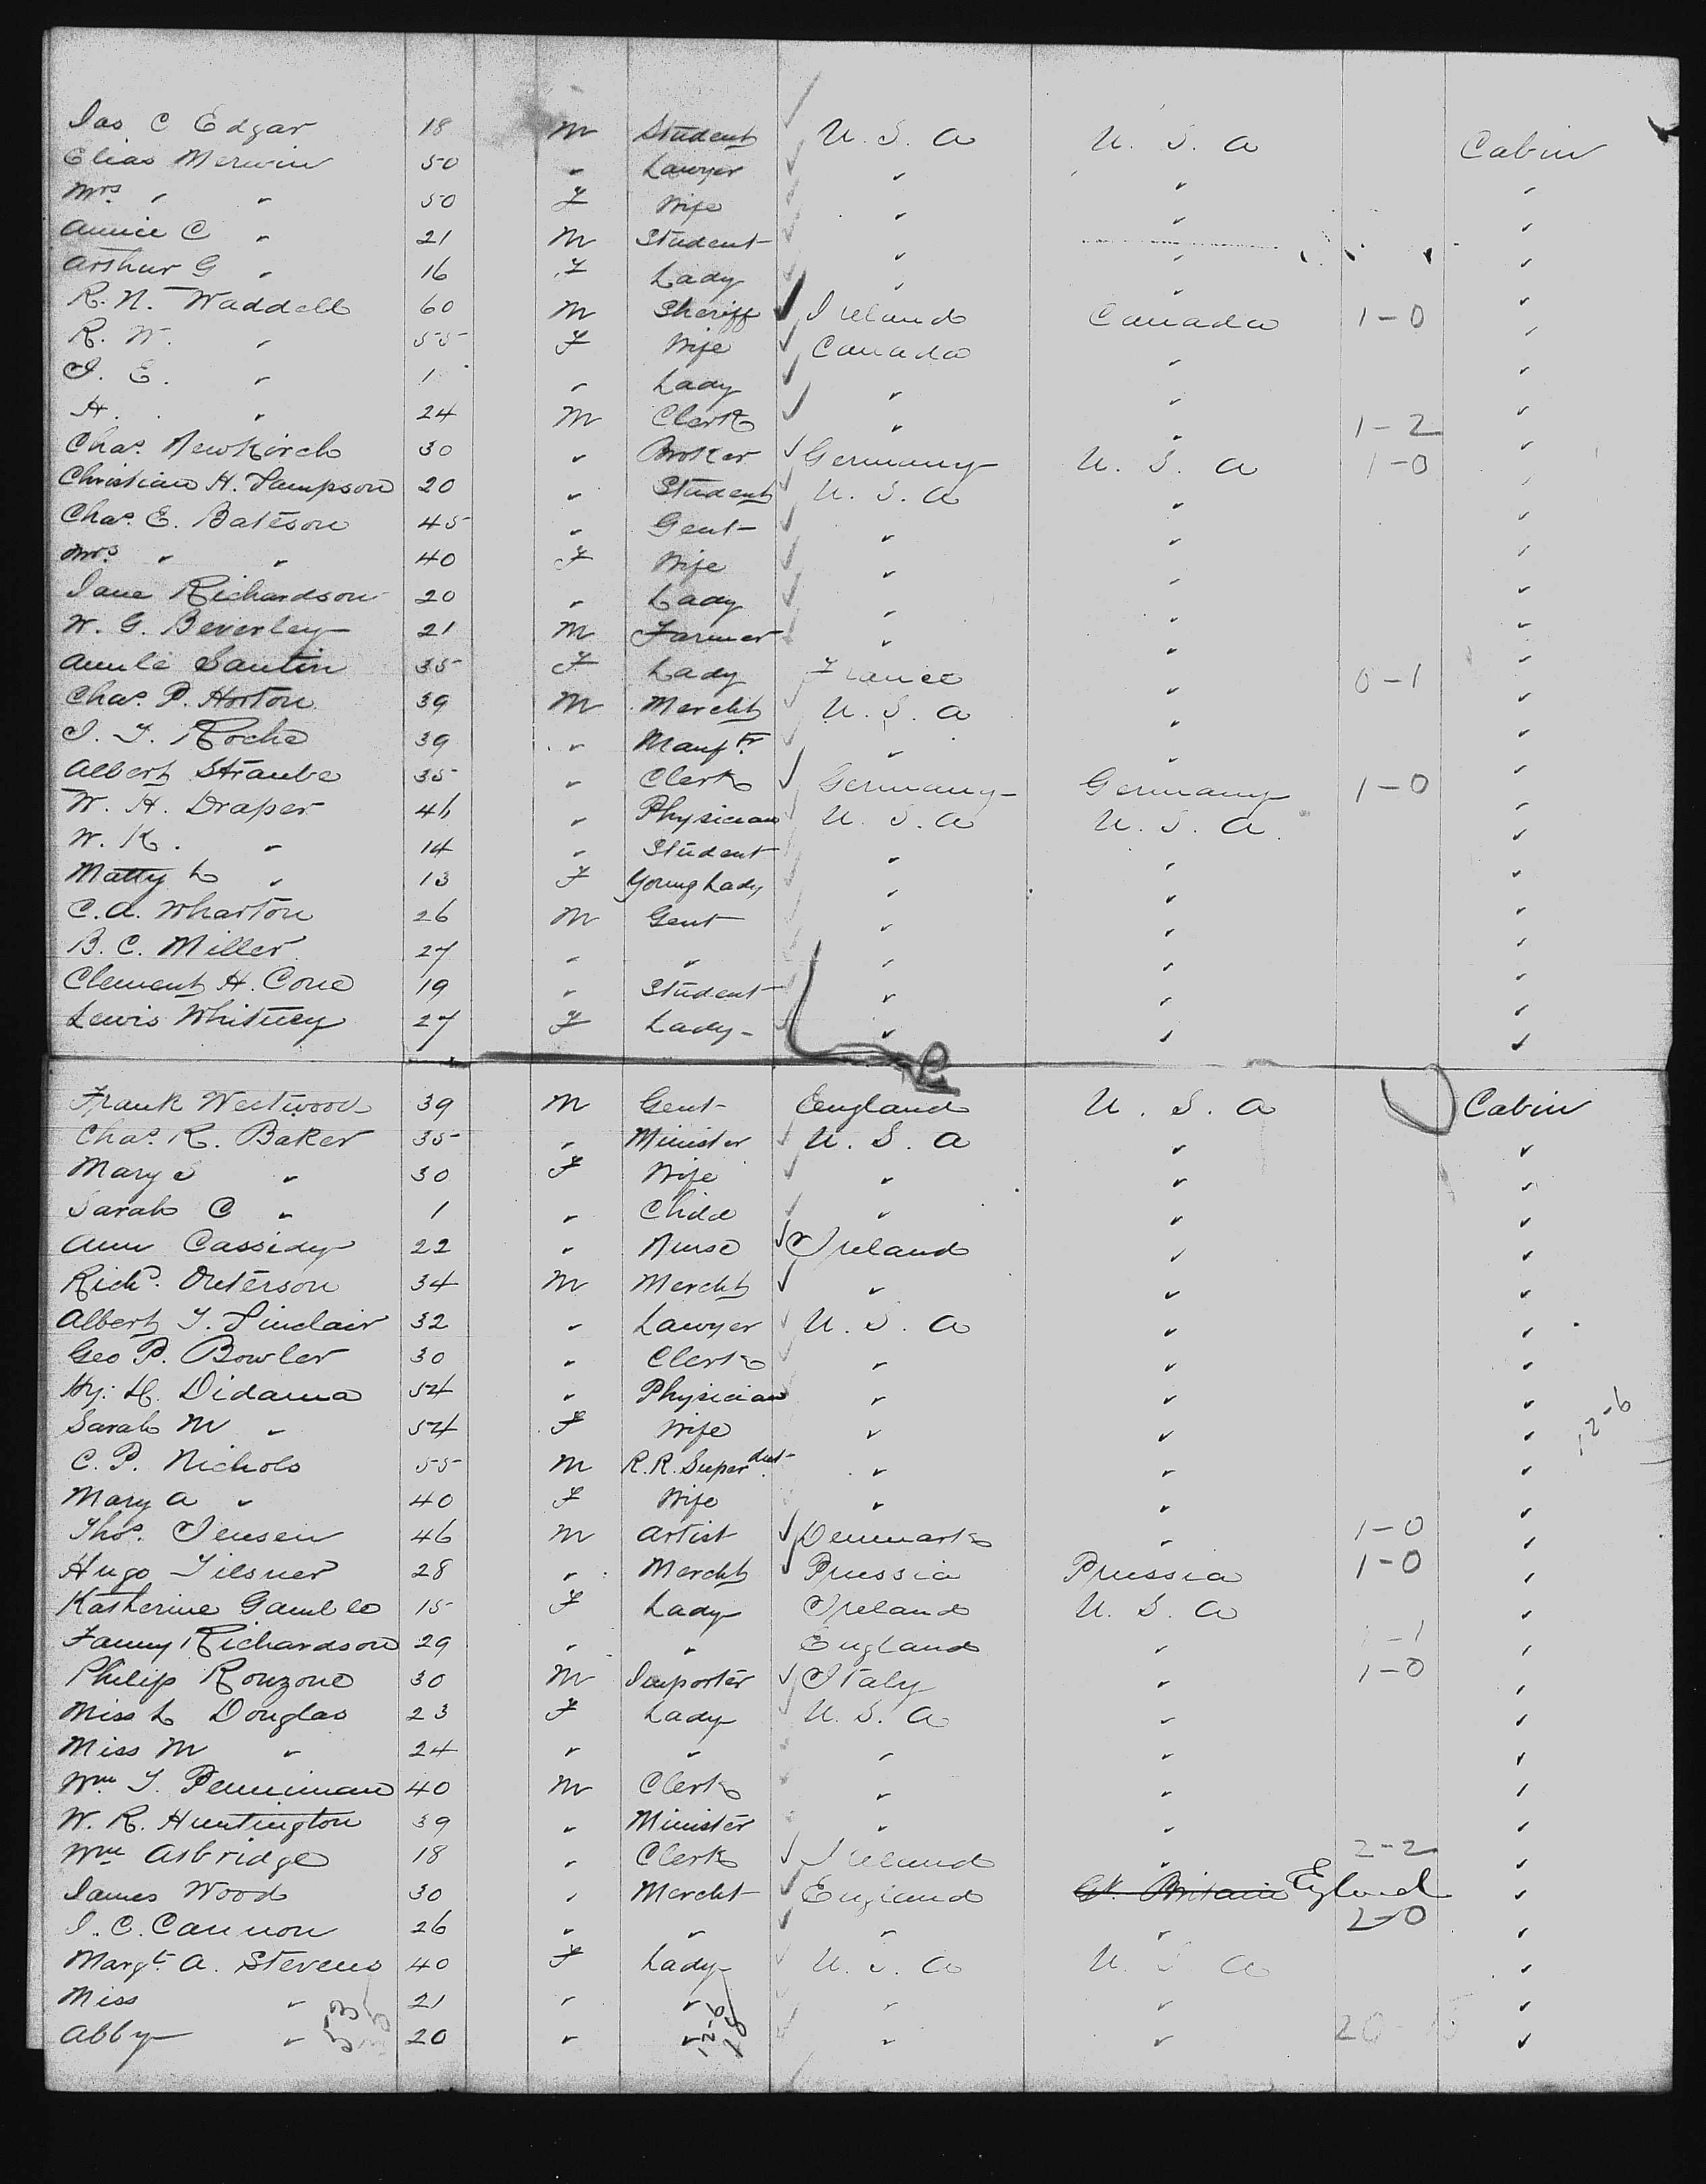 Jas C Edgar 18 M Student U. S. A U. S. A Cabin
Elias Merwin 50 " Lawyer " " "
Mrs " " 50 F Wife " " "
Annie C " 21 M Student " " "
Arthur G " 16 F Lady " " "
R. N. Waddell 60 M Sheriff Ireland Canada 1-0 "
R. W. " 55 F Wife Canada " "
J. E. " 1 " Lady " " "
H. " 24 M Clerk " " 1-2 "
Chas. Newkirch 30 " Broker Germany U. S. A 1-0 "
Christian H. Sampson 20 " Student U. S. A " "
Chas. E. Bateson 45 " Gent " " "
Mrs " " 40 F Wife " " "
Jane Richardson 20 " Lady " " "
W. G. Beverley 21 M Farmer " " "
Santin 35 F Lady France " 0-1 "
Chas. P. Horton 39 M Mercht U. S. A " "
J. F. Roche 39 " Manftr " " "
Albert Straube 35 " Clerk Germany Germany 1-0 "
W. H. Draper 46 " Physician U. S. A U. S. A. "
W. K. " 14 " Student " " "
Matty L " 13 F Young Lady " " "
C. A. Wharton 26 M Gent " " "
B. C. Miller 27 " " " " "
Clement H. Cone 19 " Student " " "
Lewis Whitney 27 F Lady " " "
Frank Westwood 39 M Gent England U. S. A Cabin
Chas. R. Baker 35 " Minister U. S. A " "
Mary S " 30 F Wife " " "
Sarah C " 1 " Child " " "
Ann Cassidy 22 " Nurse Ireland " "
Richd. Outerson 34 M Mercht " " "
Albert T. Sinclair 32 " Lawyer U. S. A " "
Geo P. Bowler 30 " Clerk " " "
Hy: D. Didama 54 " Physician " " "
Sarah M " 54 F Wife " " " 12-6
C. P. Nichols 55 M R. R. Superdnt " " "
Mary A " 40 F Wife " " "
Thos. Jensen 46 M Artist Denmark " 1-0 "
Hugo Tilsner 28 " Mercht Prussia Prussia 1-0 "
Katherine Gamble 15 F Lady Ireland U. S. A "
Fanny Richardson 29 " " England " 1-1 "
Philip Ronzone 30 M Importer Italy " 1-0 "
Miss L Douglas 23 F Lady U. S. A " "
Miss M " 24 " " " " "
Wm T. Penniman 40 M Clerk " " "
W. R. Huntington 39 " Minister " " "
Wm Asbridge 18 " Clerk Ireland " 2-2 "
James Wood 30 " Mercht England Gt. Britain England "
J. C. Cannon 26 " " " " 2-0 "
Margt. A. Stevens 40 F Lady U. S. A U. S. A "
Miss " 21 " " " " "
Abby " 20 " " 12-6 " " "